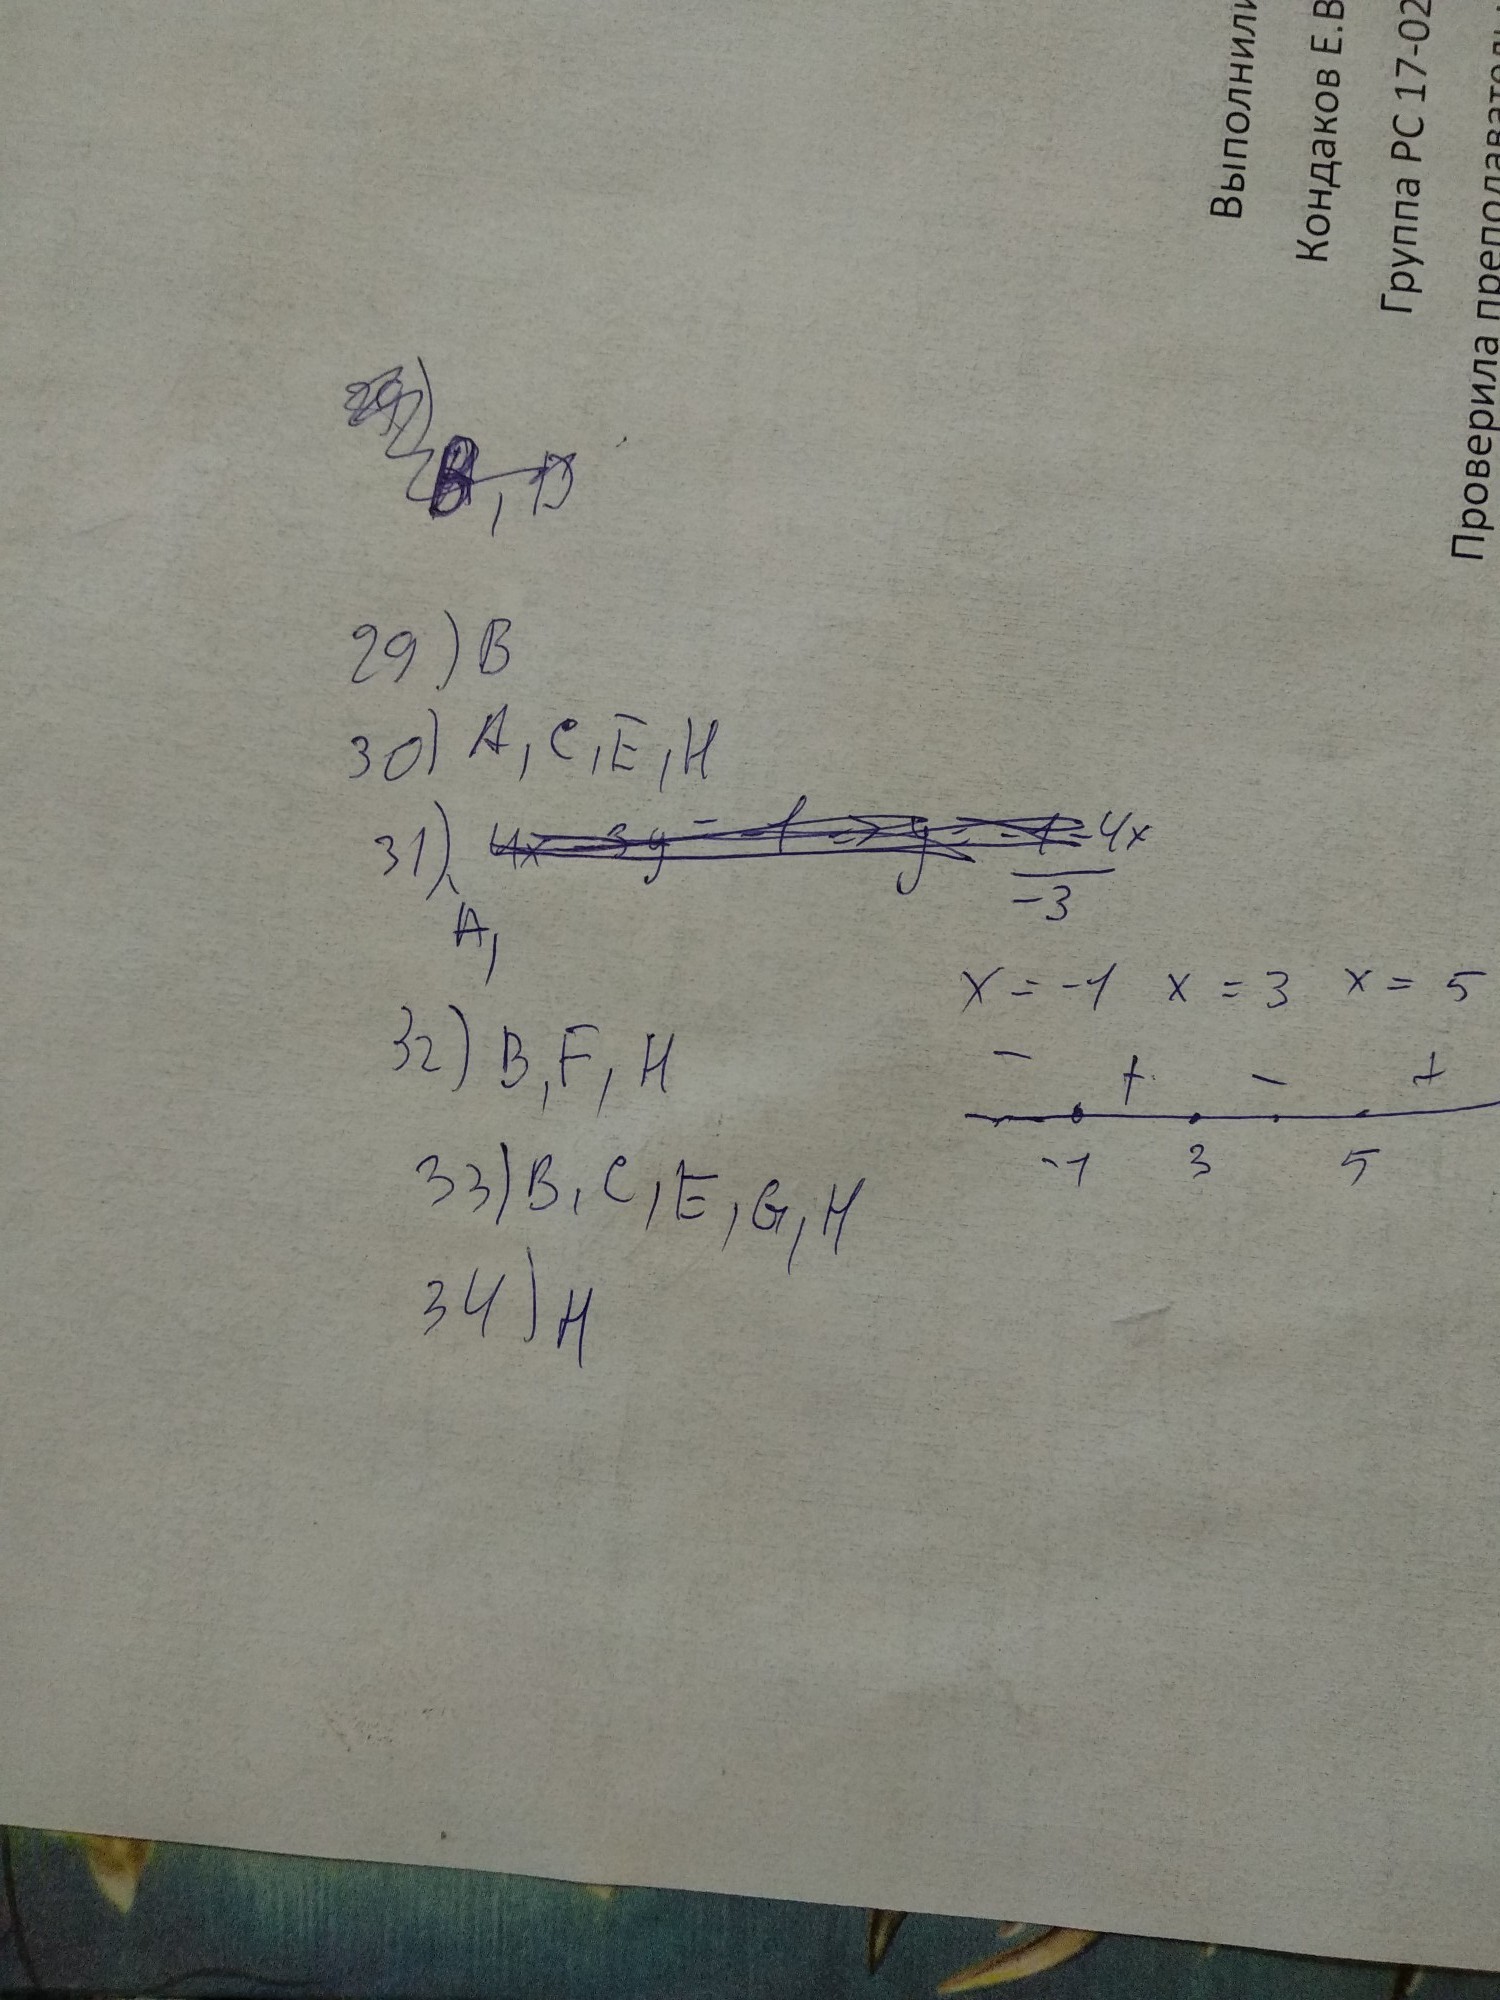 Выполнили
Кондаков Е.В
Группа РС 17-02
Проверила преподаватель
29)
B, D
29) B
30) A, C, E, H
31) 4x - 3y = -1 => y = -1 - 4x
-3
A,
x = -1 x = 3 x = 5
32) B, F, H
- + - +
-1 3 5
33) B, C, E, G, H
34) H